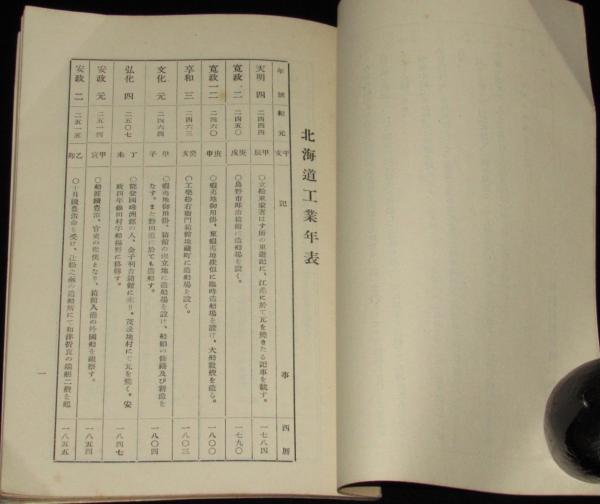 北海道工業年表
年號 紀元 干支 記事 西曆
天明四 二四四四 甲辰 ○立松東蒙著はす所の東遊記に、江差に於て瓦を燒きたる記事を載す。 一七八四
寛政二 二四五〇 庚戌 ○島野市郎治箱館に造船場を設く。 一七九〇
寛政一二 二四六〇 庚申 ○蝦夷地御用掛、東蝦夷地に臨時造船場を設け、大船數艘を造る。 一八〇〇
享和三 二四六三 癸亥 ○工樂松右衞門箱館地藏町に造船場を設く。 一八〇三
文化元 二四六四 甲子 ○蝦夷地御用掛、箱館の出立地に造船場を設け、船舶の修繕及び新造を
なす。また野田追に於ても造船す。 一八〇四
弘化四 二五〇七 丁未 ○能登國珠洲郡の人、金子利吉箱館に來り、茂邊地村にて瓦を燒く。安
政四年龜田村字に移轉す。 一八四七
安政元 二五一四 甲寅 ○船匠續豊治、官吏の從僕となり、箱館入港の外國船を視察す。 一八五四
安政二 二五一五 乙卯 ○十月續豊治命を受け、辻松之丞の造船所にて和洋折衷の端艇二艘を起 一八五五
一